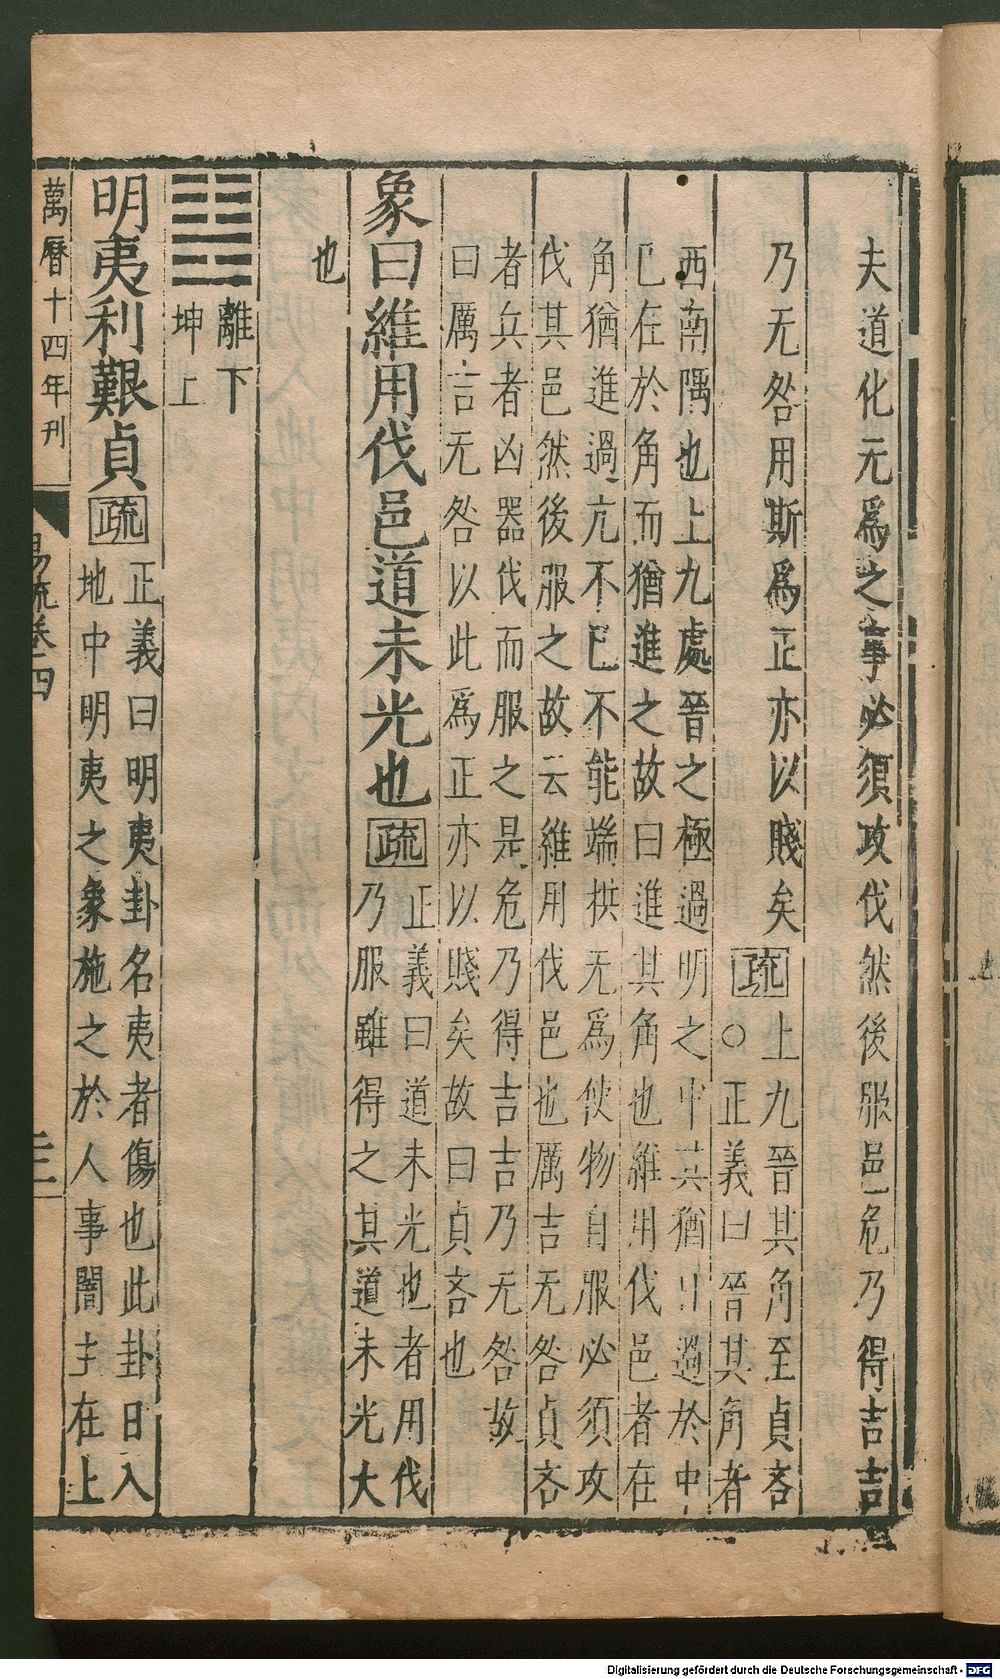 夫道化无爲之事必須攻伐然後服邑危乃得吉吉
乃无咎用斯爲正亦以賤矣疏上九晉其角至貞吝
○正義曰晉其角者
西南隅也上九處晉之極過明之中其猶日過於中
已在於角而猶進之故曰進其角也維用伐邑者在
角猶進過亢不已不能端拱无爲使物自服必須攻
伐其邑然後服之故云維用伐邑也厲吉无咎貞吝
者兵者凶器伐而服之是危乃得吉吉乃无咎故
曰厲吉无咎以此爲正亦以賤矣故曰貞吝也
象曰維用伐邑道未光也疏正義曰道未光也者用伐
乃服雖得之其道未光大
也
離下
坤上
明夷利艱貞疏正義曰明夷卦名夷者傷也此卦日入
地中明夷之象施之於人事闇主在上
萬曆十四年刊
易疏卷四
三
Digitalisierung gefördert durch die Deutsche Forschungsgemeinschaft - DFG